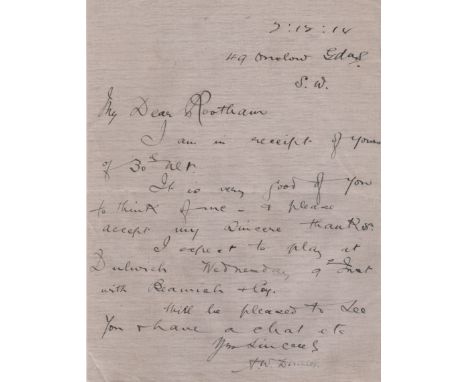 49 Onslow Gdns.
S.W.
My Dear Rootham
I am in receipt of yours
of 30th ult
It is very good of you
to think of me - & please
accept my sincere thanks.
I expect to play at
Dulwich Wednesday 9th Inst
with
Will be pleased to see
you & have a chat etc
Yrs Sincerely